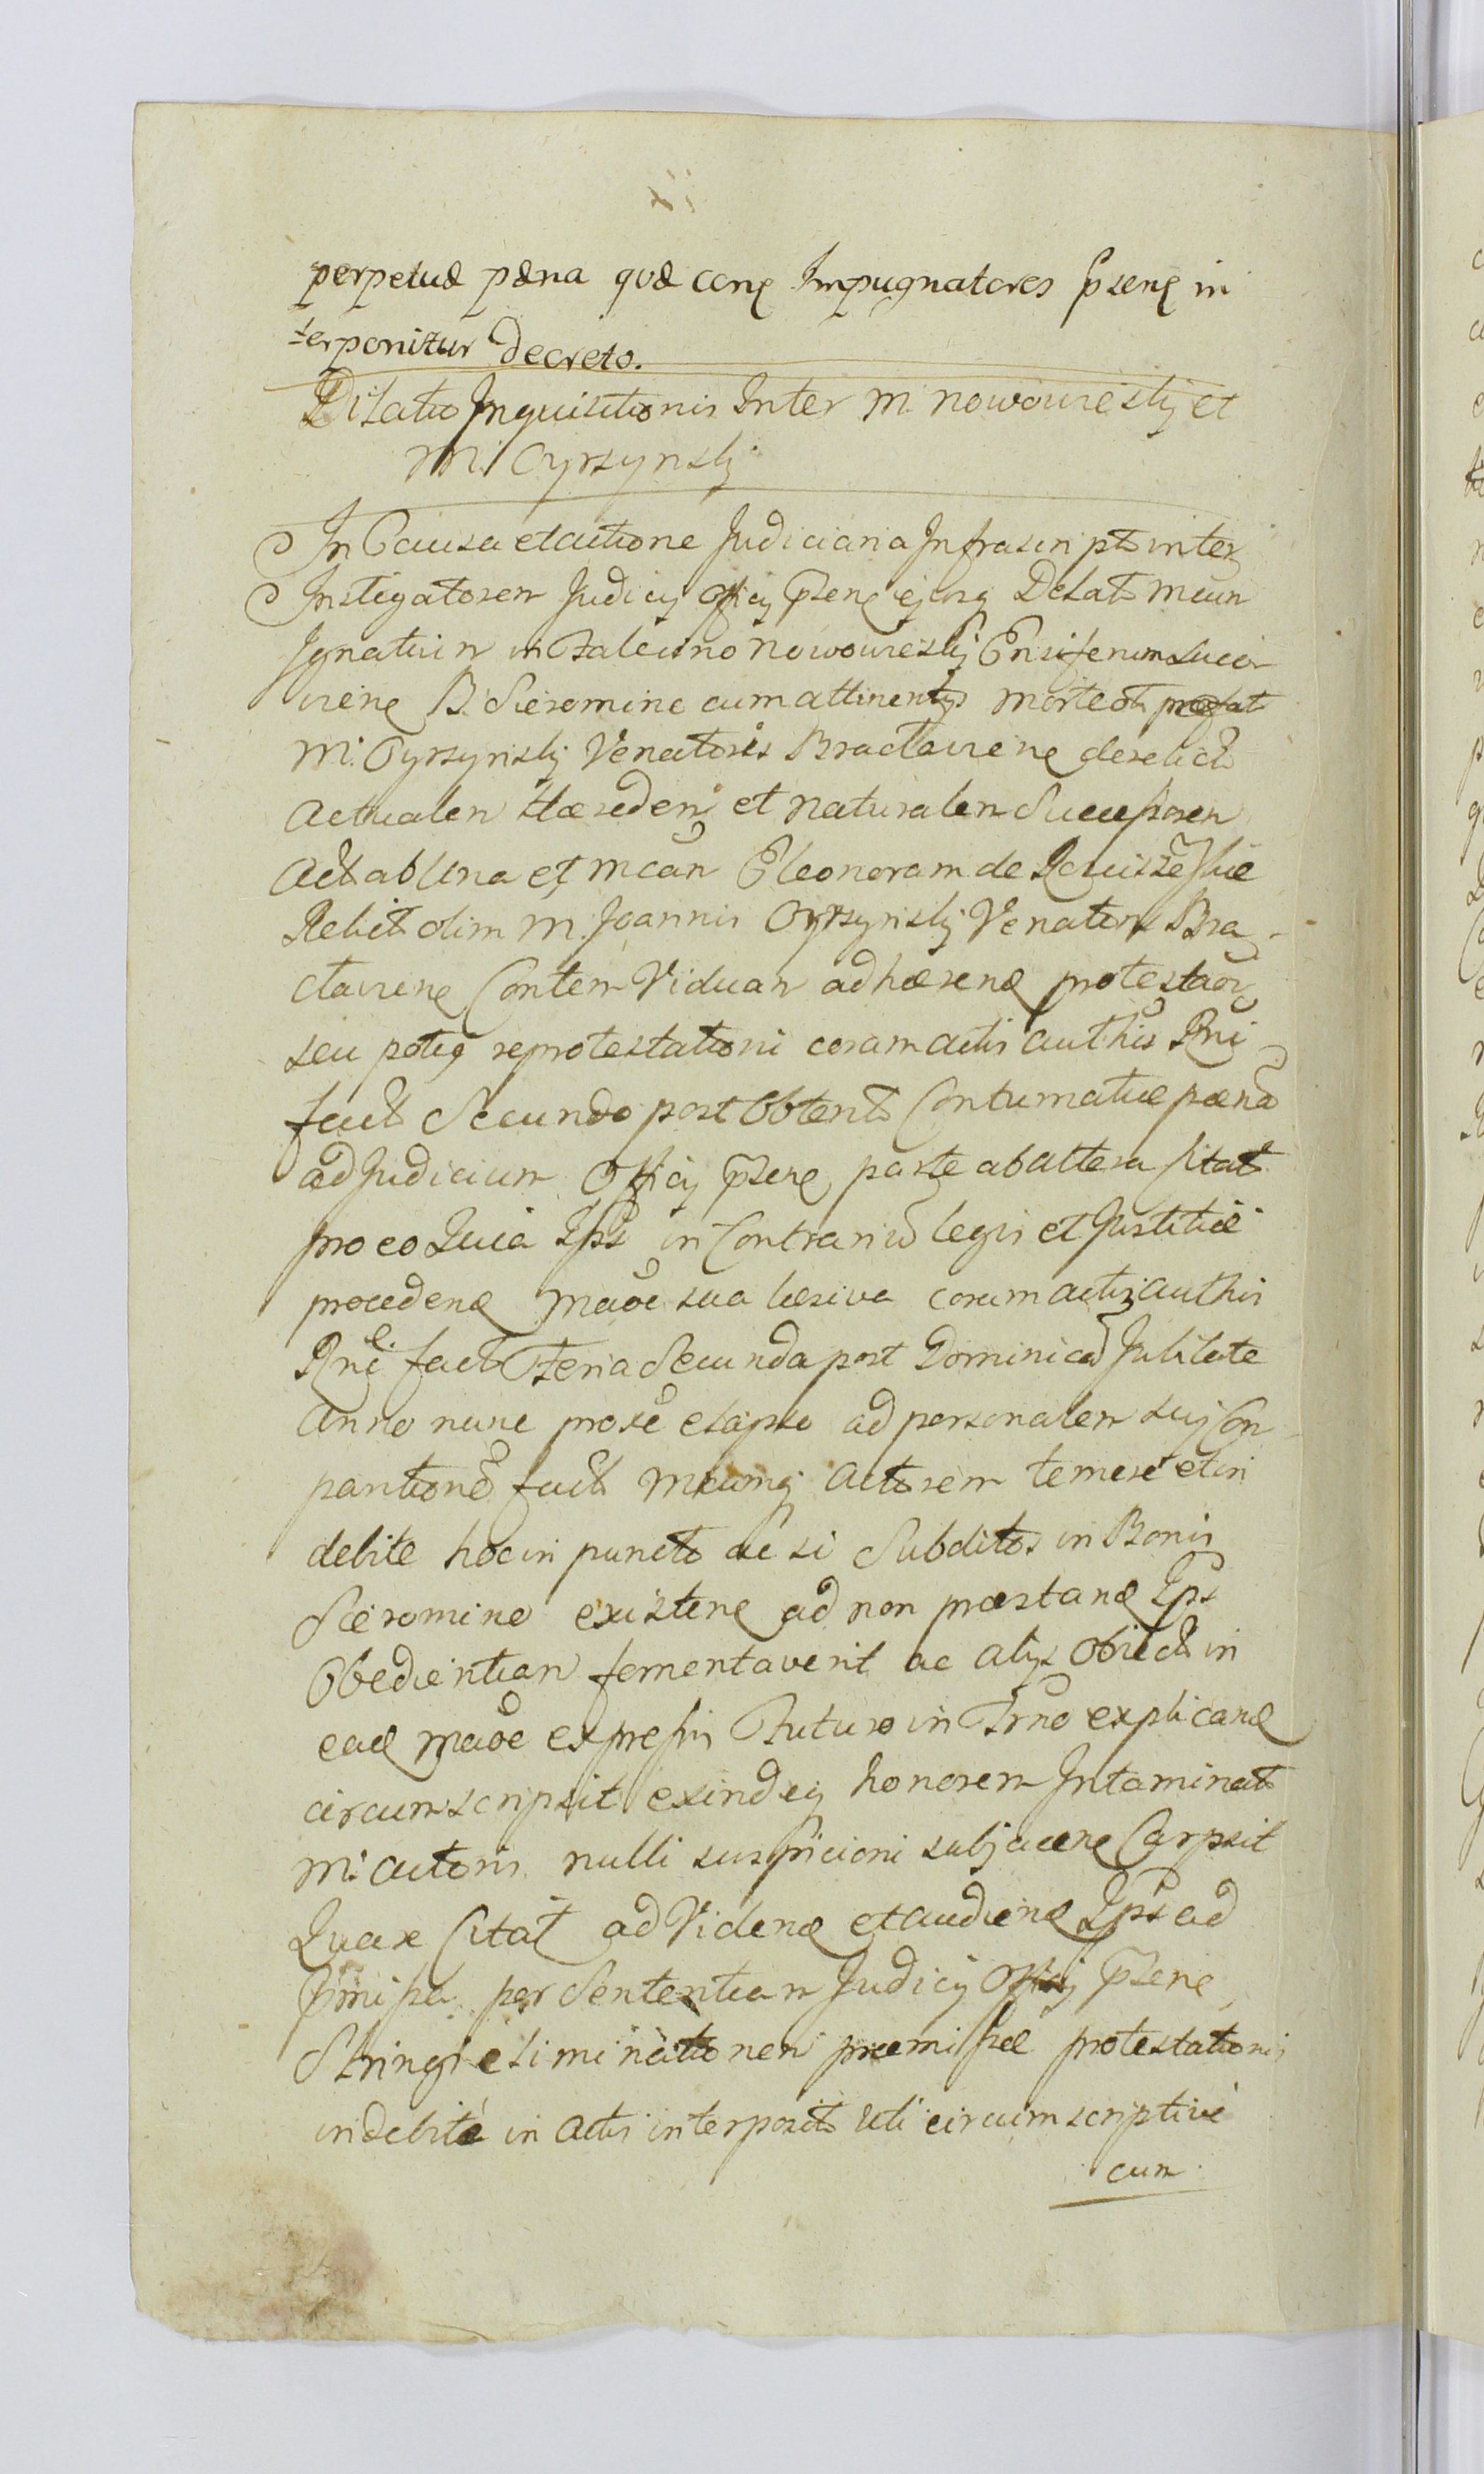 perpetuæ pæna quæ conq Impugnatores Psenq in
terponitur Decreto.
Dilatio Inquisitionis Inter M. Nowowieslij et
M. Oyrzynslij
In Causa et actione Judiciaria Infrascripta inter
Instigatorem Judicij Officij Psenq ejusq Delat Mcum
Ignatium in Falecino Nowowieslij Ensiferum
vienq B. Sieromine cum attinentijs morte olim
M. Oyrzynslij Venatoris Braclavienq derelict
Actualem Hæredem et naturalem Successorem
Act ab Una et Mcam Eleonoram de
Relict olim M. Joannis Oyrzynslij Venatoris Bra-
clavienq Contem Viduam adhærenq protestaõi
seu potiq reprotestationi coram actis authis Rni
fact Secundo post Obtent Contumatiæ pænã
ad Judicium Officij Psenq parte ab altera Citat
pro eo Quia Ips in Contrariũ legis et Justitiæ
procedenq maõe sua læsiva coram actis authis
Rni fact Feria Secunda post Dominicã Jubilate
Anno nunc proxe elapso ad personalem sui Com
paritionẽ fact Mcumq Actorem temere et in
debite hoc in puncto ac si Subditos in Bonis
Sieromine existenq ad non præstanq Ips
Obedientiam fomentaverit ac alijs Obiect in
eadq maõe expressis Futuro in Trno explicanq
circumscripsit exindeq honorem Intaminat
M. Actoris nulli suspicioni subjacenq Carpsit
Quare Citat ad Videnq et audienq Ips ad
Pmissa per Sententiam Judicij Officij Psenq
Stringi eliminationem præmissæ protestationis
indebité in Actis interposit uti circumscriptivé
cum